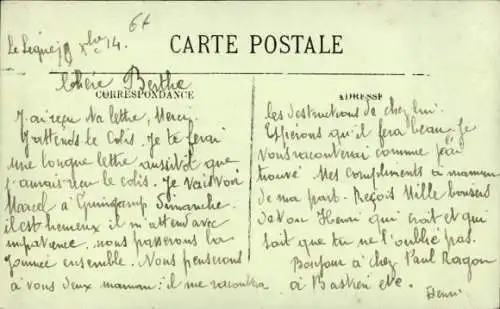 Le Légué 8 Xbre 14.
64
CARTE POSTALE
Chère Berthe
CORRESPONDANCE
J'ai reçu ta lettre, Merci.
J'attends le colis. Je te ferai
une longue lettre aussitôt que
j'aurais reçu le colis. Je vais voir
Marcel à Guingamp dimanche.
il est heureux il m'attend avec
impatience. nous passerons la
journée ensemble. Nous penserons
à vous deux maman: il me racontra
ADRESSE
les destructions de chez lui.
Espérons qu'il fera beau. Je
vous raconterai comme j'ai
trouvé. Mes compliments à maman
de ma part. Reçois Mille baisers
de ton Henri qui croit et qui
sait que tu ne l'oublie pas.
Bonjour à chez Paul Ragon
à Bastien etc.
Henri